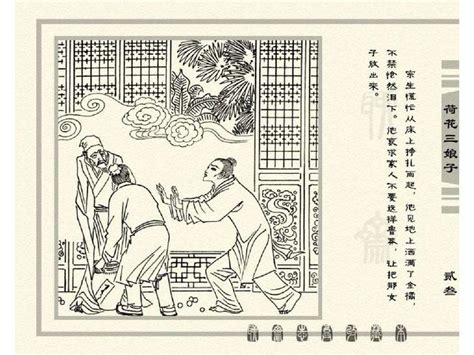 荷花三娘子
贰叁
宗生慌忙从床上挣扎而起，他见地上洒满了金橘，
不禁怆然泪下。他哀求家人不要这样鲁莽，让把那女
子放出来。